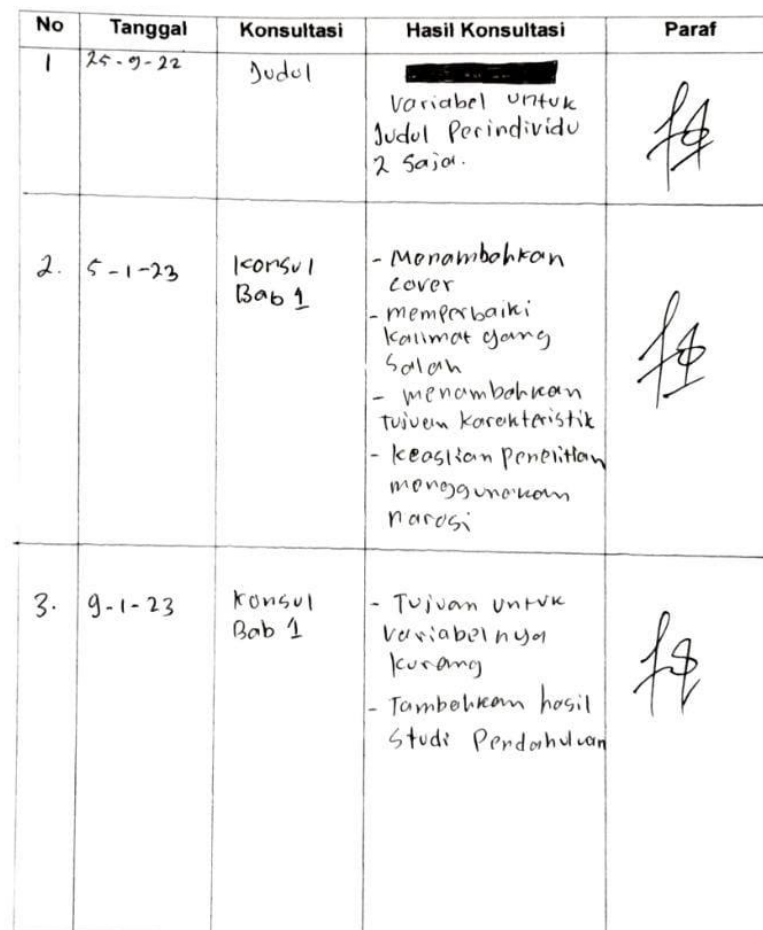 No Tanggal Konsultasi Hasil Konsultasi Paraf
1 25-9-22 Judul
Variabel untuk
Judul Perindividu
2 Saja.
2. 5-1-23 Konsul - Menambahkan
Bab 1 cover
- memperbaiki
kalimat yang
Salah
- menambahkan
tujuan karakteristik
- keaslian penelitian
menggunakan
narasi
3. 9-1-23 Konsul - Tujuan untuk
Bab 1 Variabelnya
kurang
- Tambahkan hasil
Studi Pendahuluan